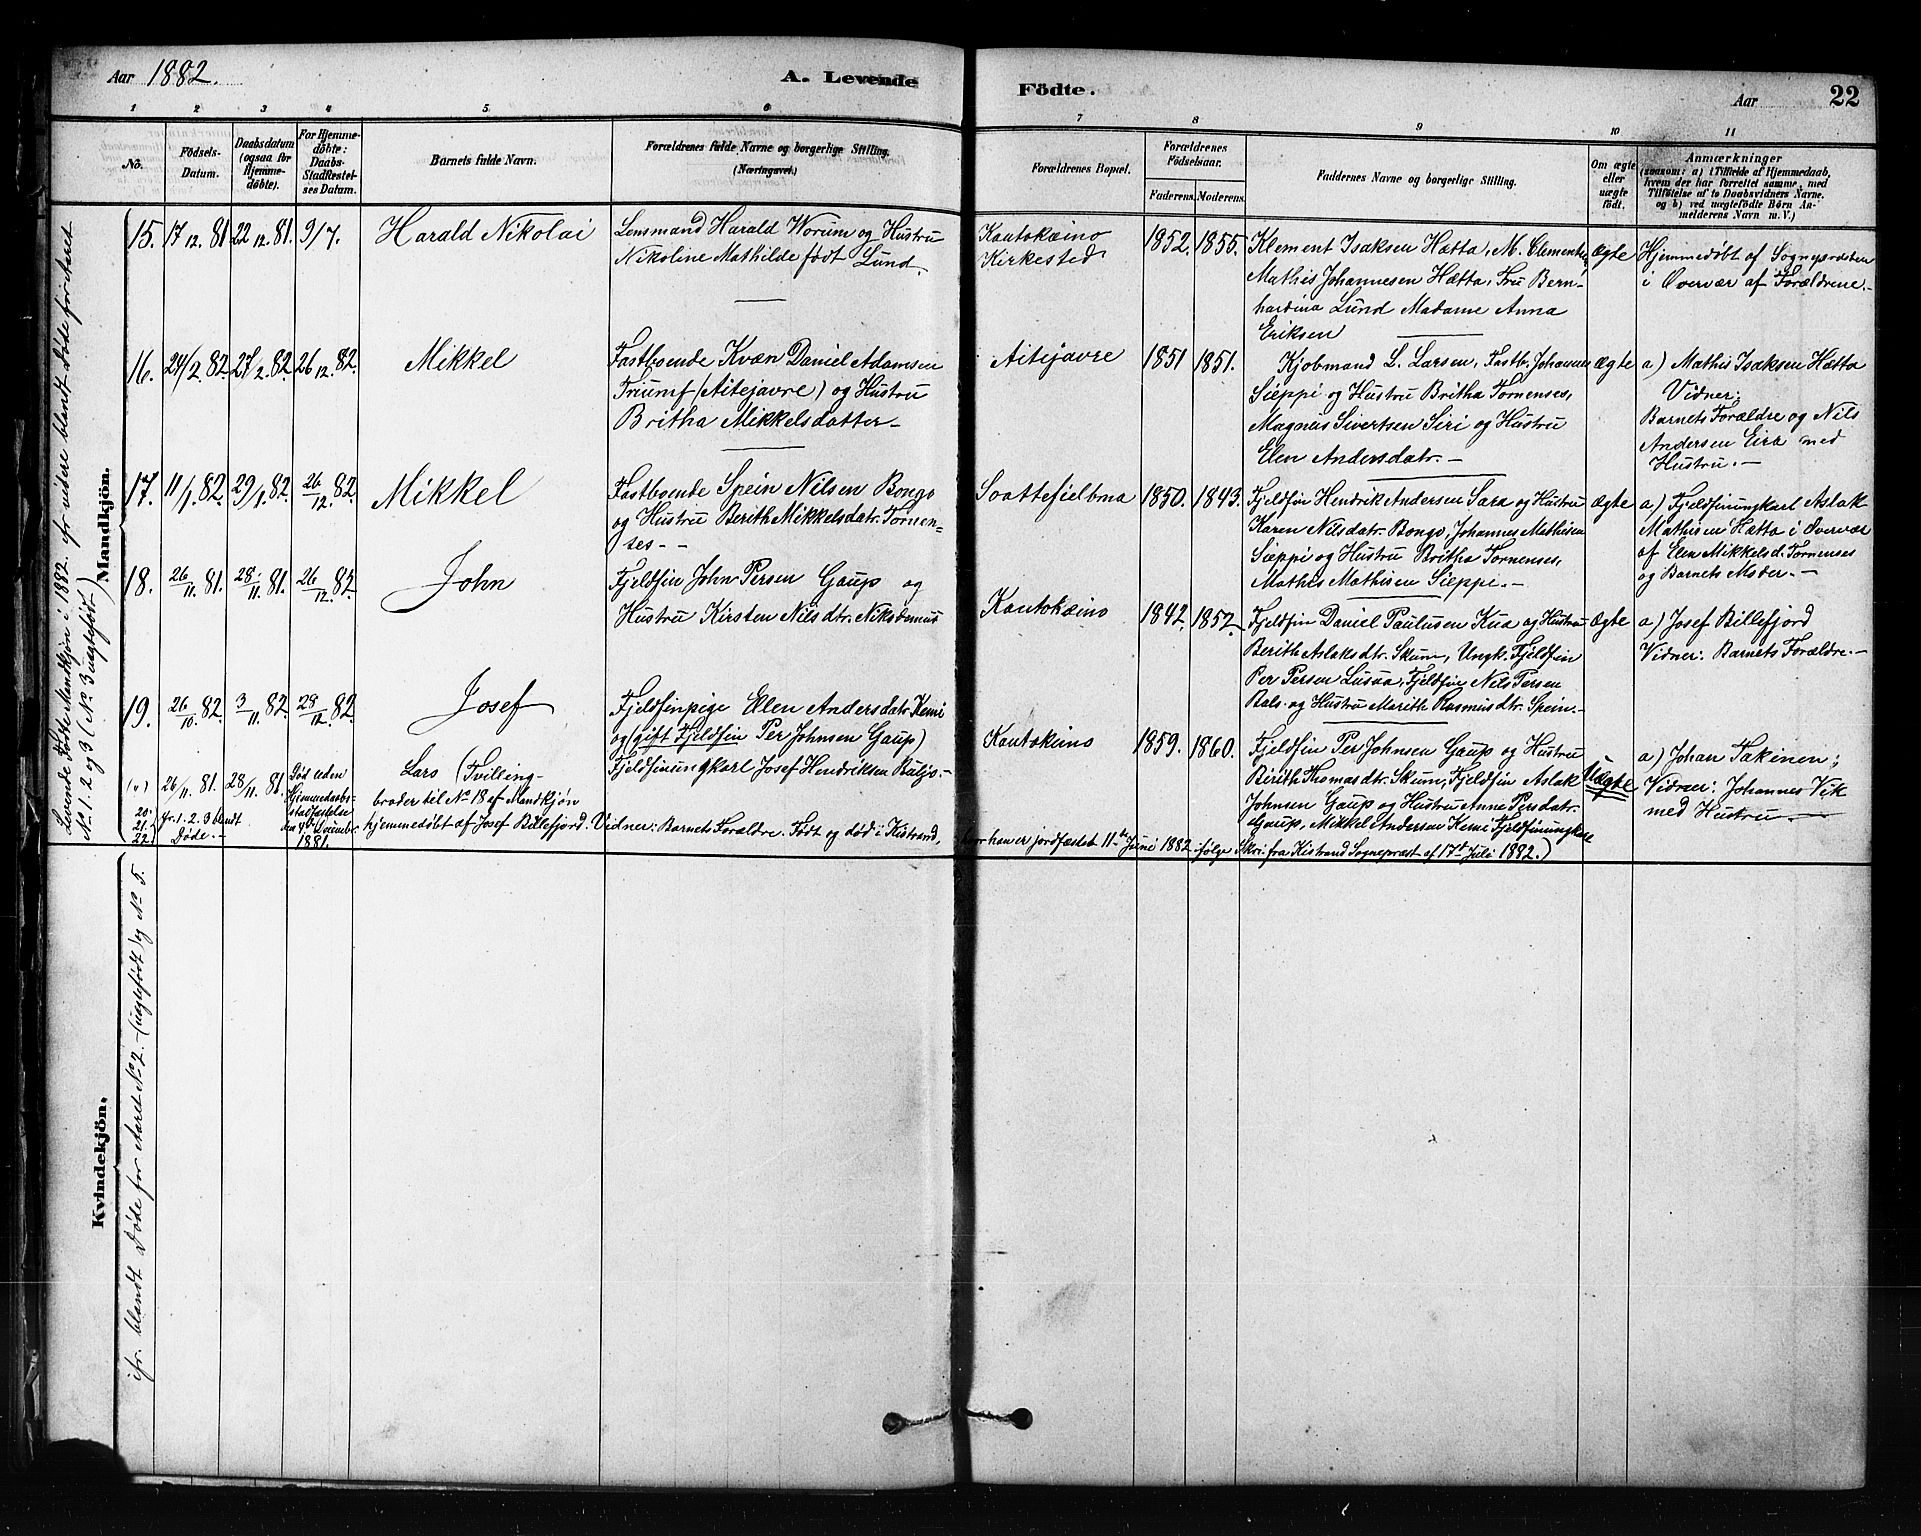 Aar 1882.
A. Levende
Födte.
Aar
22
1
2
3
4
5
6
7
8
9
10
11
No.
Födsels-
Datum.
Daabsdatum
(ogsaa for
Hjemme-
døbte).
For Hjemme-
døbte:
Daabs-
Stadfæstel-
ses Datum.
Barnets fulde Navn.
Forældrenes fulde Navne og borgerlige Stilling.
(Næringsvei.)
Forældrenes Bopæl.
Forældrenes
Fødselsaar.
Faderens.
Moderens.
Faddernes Navne og borgerlige Stilling.
Om ægte
eller
uægte
født.
Anmærkninger
(saasom: a) i Tilfælde af Hjemmedaab,
hvem der har forrettet samme, med
Tilføielse af to Daabsvidners Navne,
og b) ved uægtefödte Börn An-
melderens Navn m. V.)
Levende Fødte Mandkjøn i 1882. jfr videre blandt Døde for Aaret
No. 1. 2 og 3 (No 3 uægteføđt.)
Mandkjön.
15.
17/12. 81
22/12. 81.
9/7.
Harald Nikolai
Lensmand Harald Worum og Hustru
Nikoline Mathilde født Lund.
Kautokæino
Kirkested
1852.
1855.
Klement Isaksen Hætta, M. Clementsen
Mathis Johannesen Hætta, Fru Bern-
hardina Lund Madame Anna
Eriksen
Ægte
Hjemmedøbt af Sognepræsten
i Overvær af Forældrene.-
16.
24/2. 82.
27/2. 82.
26/12. 82.
Mikkel
Fastboende Kvæn Daniel Adamsen
Triumf (Aitejavre) og Hustru
Britha Mikkelsdatter -
Aitejavre
1851
1851.
Kjøbmand L. Larsen, Fastb. Johannes
Siæppi og Hustru Britha Tornenses,
Magnus Sivertsen Siri og Hustru
Elen Andersdatr. -
Ægte
a) Mathis Isaksen Hætta
Vidner:
Barnets Forældre og Nils
Andersen Eira med
Hustru. -
17.
11/1. 82.
29/1. 82.
26/12. 82.
Mikkel
Fastboende Spein Nilsen Bongo
og Hustru Berith Mikkelsdatr. Tornen-
ses - -
Soattefielbma
1850.
1843.
Fjeldfin Hendrik Andersen Sara og Hustru
Karen Nilsdatr. Bongo, Johannes Mathisen
Siæppi og Hustru Britha Tornenses,
Mathis Mathisen Siæppi. -
Ægte
a) Fjeldfinungkarl Aslak
Mathisen Hætta i Overvær
af Elen Mikkelsd. Tornenses
og Barnets Moder. -
18.
26/11. 81.
28/11. 81.
26/12. 82.
John
Fjeldfin John Persen Gaup og
Hustru Kirsten Nilsdtr. Nikodemus
Kautokæino
1842.
1852.
Fjeldfin Daniel Paulusen Kua og Hustru
Berith Aslaksdtr. Skum, Ungk. Fjeldfin
Per Persen Lusua, Fjeldfin Nils Persen
Bals og Hustru Marith Rasmusdtr. Spein. -
Ægte
a) Josef Billefjord
Vidner: Barnets Forældre. -
19.
26/10. 82.
3/11. 82.
28/12. 82.
Josef
Fjeldfinpige Elen Andersdatr. Kemi
og (gift Fjeldfin Per Johnsen Gaup)
Fjeldfinungkarl Josef Hendriksen Buljo. -
Kautokeino
1859.
1860.
Fjeldfin Per Johnsen Gaup og Hustru
Birith Thomasdtr. Skum, Fjeldfin Aslak
Johnsen Gaup og Hustru Anne Persdatr.
Gaup, Mikkel Andersen Kemi Fjeldfinungkarl
Uægte
a) Johan Takinen;
Vidner: Johannes Vik
med Hustru. -
26/11. 81.
28/11. 81.
Død uden
Hjemmedaabs-
stadfæstelse
den 4de Decembr.
1881.
Lars (Tvilling-
broder til No 18 af Mandkjøn
hjemmedøbt af Josef Billefjord. Vidner: Barnets Forældre. Født og død i Kistrand,
hvor han er jordfæstet 11te Juni 1882 ifølge Skri. fra Kistrand Sognepræst af 17de Juli 1882.)
20.
21.
22.
jfr. 1. 2. 3 blandt
Døde. -
Kvindekjön.
jfr. blandt Døde for Aaret No 2. (uægtefødt) og No 5.